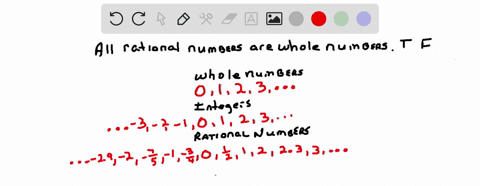 All rational numbers are whole numbers. T F
Whole numbers
0, 1, 2, 3, ...
Integers
... -3, -2, -1, 0, 1, 2, 3, ...
Rational Numbers
... -29, -2, -7/5, -1, -3/4, 0, 1/2, 1, 2, 2.3, 3, ...